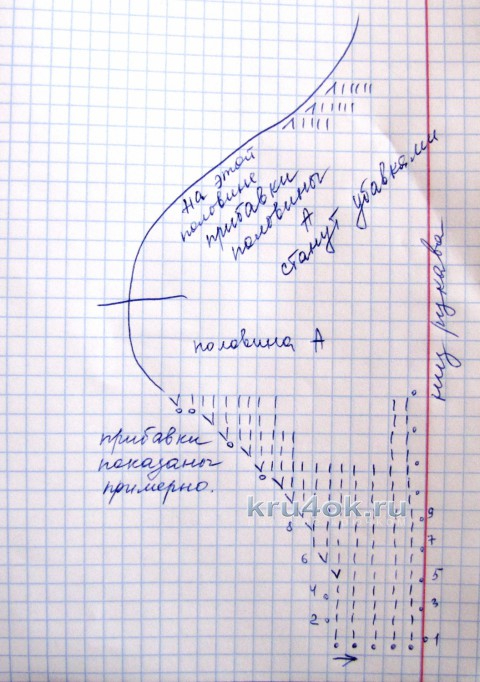 На этой
половине
прибавки
половины
А
станут убавками
низ рукава
половина А
прибавки
показаны
примерно.
kru4ok.ru
8
6
4
2
9
7
5
3
1